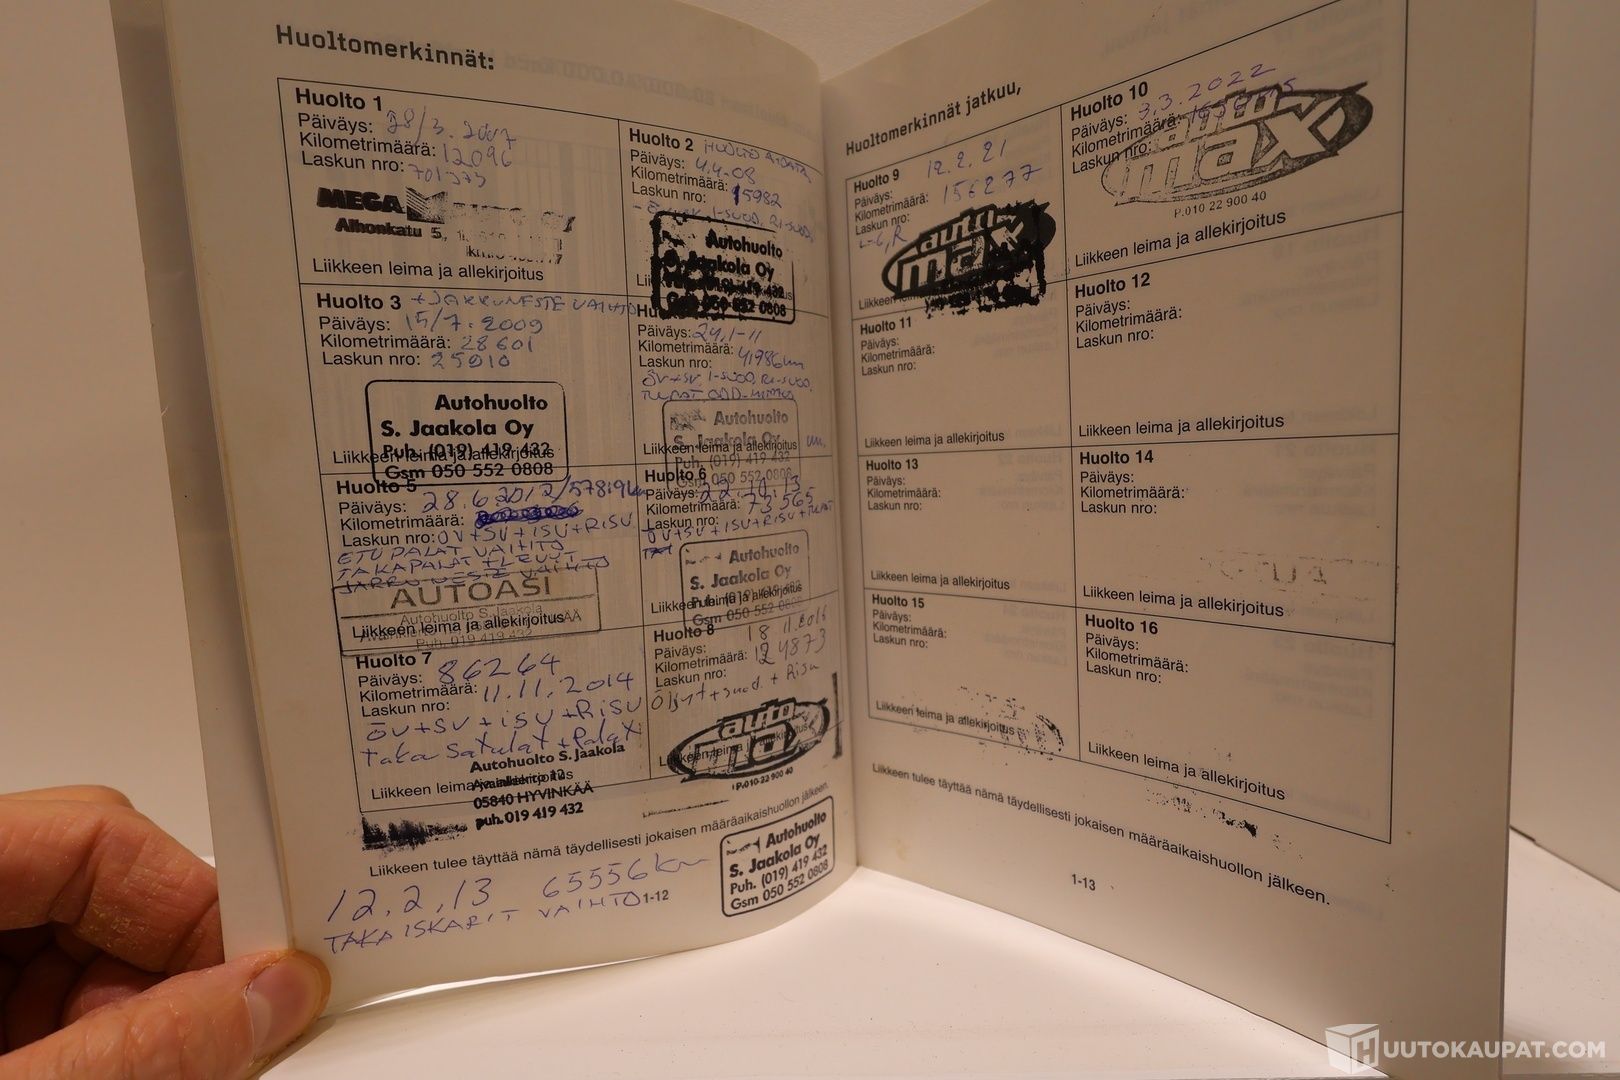 Huoltomerkinnät:
Huolto 1
Päiväys: 28/3. 2007
Kilometrimäärä: 12096
Laskun nro:
MEGA
Alhonkatu 5,
Liikkeen leima ja allekirjoitus
Huolto 2
Päiväys: 4.4-08
Kilometrimäärä:
Laskun nro: 15982
Autohuolto
S. Jaakola Oy
Gsm 050 552 0808
Huolto 3 + JARRUNESTE VAIHTO
Päiväys: 15/7. 2009
Kilometrimäärä: 28601
Laskun nro: 25910
Autohuolto
S. Jaakola Oy
Puh. (019) 419 432
Liikkeen leima ja allekirjoitus
Gsm 050 552 0808
Päiväys: 24.1-11
Kilometrimäärä: 41986km
Laskun nro:
ÖV+SV, I-SUOD, RI-SUOD,
Autohuolto
S. Jaakola Oy
Liikkeen leima ja allekirjoitus
Puh. (019) 419 432
Gsm 050 552 0808
Huolto 5
Päiväys: 28.6.2012/57819km
Kilometrimäärä:
Laskun nro: ÖV+SV+ISV+RISU
ETUPALAT VAIHTO
TAKAPALAT + LEVYT
JARRUNESTE VAIHTO
AUTOASI
Autohuolto S. Jaakola
Liikkeen leima ja allekirjoitus
Puh. 019 419 432
Huolto 6
Päiväys: 22.10.13
Kilometrimäärä: 73565
Laskun nro:
ÖV+SV+ISV+RISU+TULPAT
Autohuolto
S. Jaakola Oy
Puh. (019) 419 432
Liikkeen leima ja allekirjoitus
Gsm 050 552 0808
Huolto 7
Päiväys: 86264
Kilometrimäärä: 11.11.2014
Laskun nro:
ÖV+SV+ISV+RISU
taka satulat + Palat
Autohuolto S. Jaakola
Liikkeen leima ja allekirjoitus
05840 HYVINKÄÄ
puh. 019 419 432
Huolto 8
Päiväys: 18 11.2016
Kilometrimäärä: 124873
Laskun nro:
Öljyt+suod. + Risu
auto
max
Liikkeen leima ja allekirjoitus
P.010-22 900 40
Liikkeen tulee täyttää nämä täydellisesti jokaisen määräaikaishuollon jälkeen.
12.2.13 65556km
TAKAISKARIT VAIHTO
1-12
Autohuolto
S. Jaakola Oy
Puh. (019) 419 432
Gsm 050 552 0808
Huoltomerkinnät jatkuu,
Huolto 9
Päiväys: 12.2.21
Kilometrimäärä: 156277
Laskun nro:
auto
max
Huolto 10
Päiväys: 3.3.2022
Kilometrimäärä:
Laskun nro:
auto
max
P.010 22 900 40
Liikkeen leima ja allekirjoitus
Huolto 11
Päiväys:
Kilometrimäärä:
Laskun nro:
Liikkeen leima ja allekirjoitus
Huolto 12
Päiväys:
Kilometrimäärä:
Laskun nro:
Liikkeen leima ja allekirjoitus
Huolto 13
Päiväys:
Kilometrimäärä:
Laskun nro:
Liikkeen leima ja allekirjoitus
Huolto 14
Päiväys:
Kilometrimäärä:
Laskun nro:
Liikkeen leima ja allekirjoitus
Huolto 15
Päiväys:
Kilometrimäärä:
Laskun nro:
Liikkeen leima ja allekirjoitus
Huolto 16
Päiväys:
Kilometrimäärä:
Laskun nro:
Liikkeen leima ja allekirjoitus
Liikkeen tulee täyttää nämä täydellisesti jokaisen määräaikaishuollon jälkeen.
1-13
HUUTOKAUPAT.COM